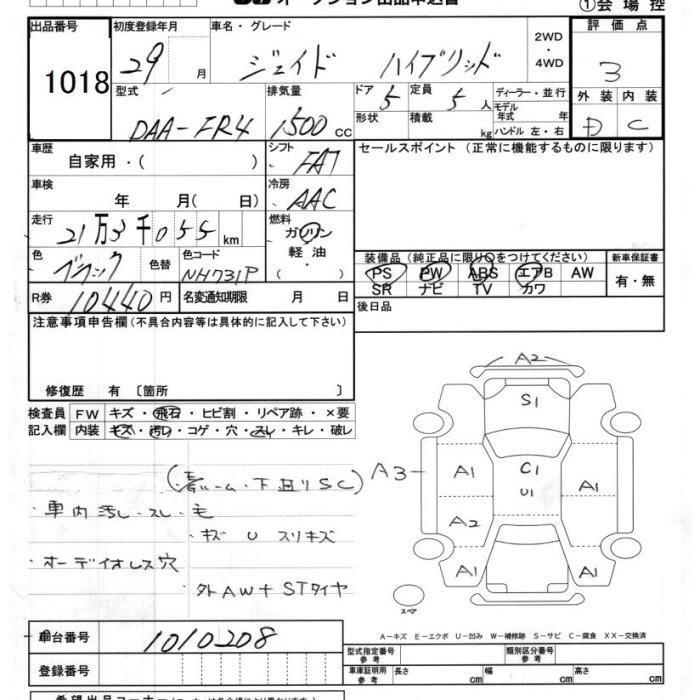 ①会場控
出品番号
1018
初度登録年月
29 月
車名・グレード
ジェイド ハイブリッド
2WD
・
4WD
評価点
3
型式
DAA-FR4
排気量
1500 CC
ドア
5
定員
5 人
形状
積載
kg
ディーラー・並行
モデル年式 年
ハンドル 左・右
外装 内装
D C
車歴
自家用・( )
シフト
FA7
セールスポイント(正常に機能するものに限ります)
車検
年 月( 日)
冷房
AAC
走行
21万3千055 km
燃料
ガソリン
・
軽油
( )
色
ブラック
色替
色コード
NH731P
装備品(純正品に限り○をつけてください)
PS PW ABS エアB AW
SR ナビ TV カワ
新車保証書
有・無
R券
10440円
名変通知期限 月 日
後日品
注意事項申告欄(不具合内容等は具体的に記入して下さい)
修復歴 有 〔箇所 〕
検査員記入欄
FW キズ・飛石・ヒビ割・リペア跡・×要
内装 キズ・汚れ・コゲ・穴・スレ・キレ・破レ
ルーム・下廻りSC)
・車内汚し・スレ・毛
・キズ U スリキズ
・オーディオレス穴
・外AW+STタイヤ
A2
S1
A3
A1
C1
U1
A1
A2
A1
A1
スペア
A-キズ E-エクボ U-凹み W-補修跡 S-サビ C-腐食 XX-交換済
車台番号
1010208
登録番号
型式指定番号
参考
類別区分番号
参考
車庫証明用
参考
長さ cm
幅 cm
高さ cm